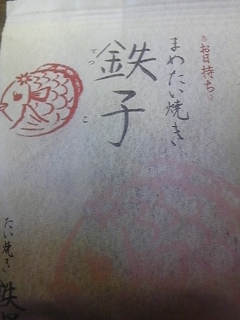 お日持ち。
まめたい焼き
鉄子
てつこ
たい焼き